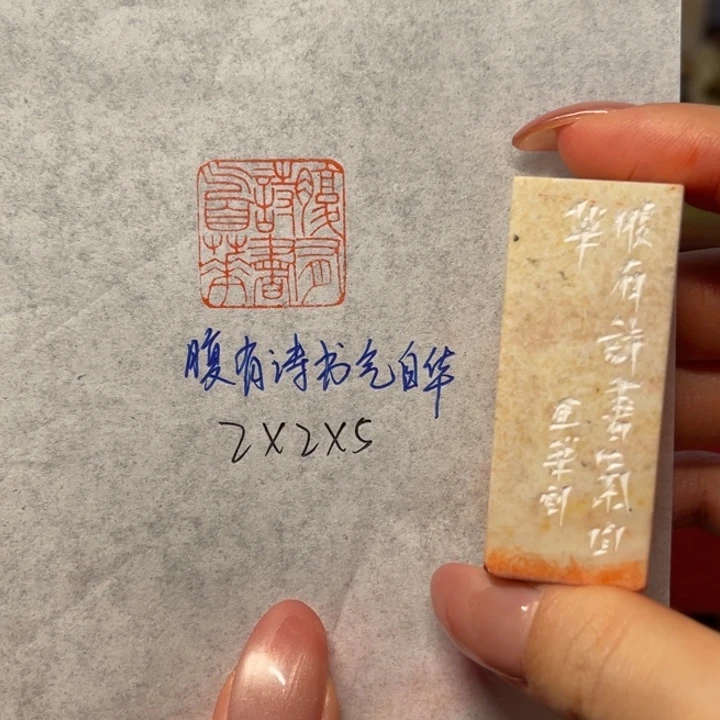 腹有
詩書
氣自華
腹有诗书气自华
2X2X5
腹有詩書氣自
華